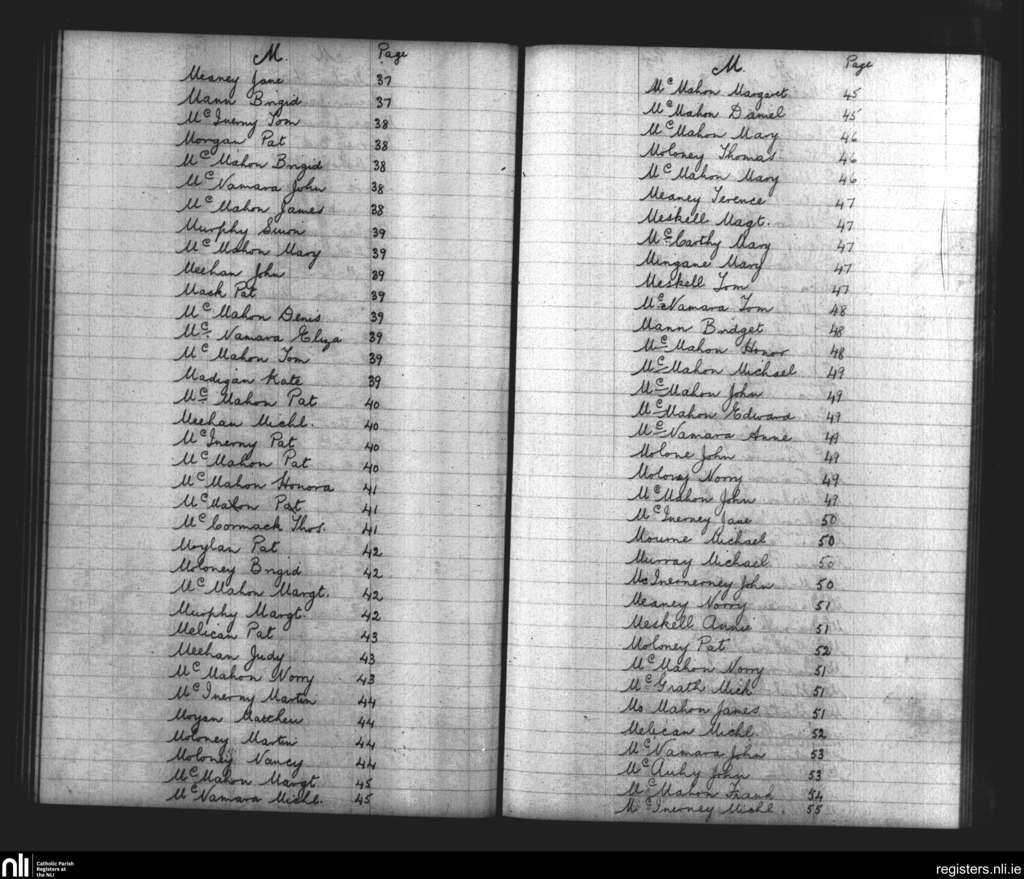 M. Page
Meaney Jane 37
Mann Brigid 37
McInerny Tom 38
Morgan Pat 38
McMahon Brigid 38
McNamara John 38
McMahon James 38
Murphy Simon 39
McMahon Mary 39
Meehan John 39
Mack Pat 39
McMahon Denis 39
Mc. Namara Eliza 39
McMahon Tom 39
Madigan Kate 39
Mc Mahon Pat 40
Meehan Michl. 40
McInerny Pat 40
McMahon Pat 40
McMahon Honora 41
McMahon Pat 41
McCormack Thos. 41
Moylan Pat 42
Moloney Brigid 42
McMahon Margt. 42
Murphy Margt. 42
Melican Pat 43
Meehan Judy 43
McMahon Norry 43
McInerny Martin 44
Matthew 44
Moloney Martin 44
Moloney Nancy 44
McMahon Margt 45
McNamara Michl. 45
M. Page
McMahon Margaret 45
McMahon Daniel 45
McMahon Mary 46
Moloney Thomas 46
McMahon Mary 46
Meaney Terence 47
Meskell Magt. 47
McCarthy Mary 47
Mengane Mary 47
Meskell Tom 47
McNamara Tom 48
Mann Bridget 48
McMahon Honor 48
McMahon Michael 49
McMahon John 49
McMahon Edward 49
McNamara Anne 49
Molone John 49
Norry 49
McMahon John 49
McInerney Jane 50
Mourne Michael 50
Murray Michael 50
Mc Inernerney John 50
Meaney Norry 51
Meskell Annie 51
Moloney Pat 52
McMahon Norry 51
McGrath Mick 51
Mc Mahon James 51
Melican Michl 52
McNamara John 53
John 53
McMahon Frank 54
McInerney Michl. 55
nli Catholic Parish
Registers at
the NLI
registers.nli.ie